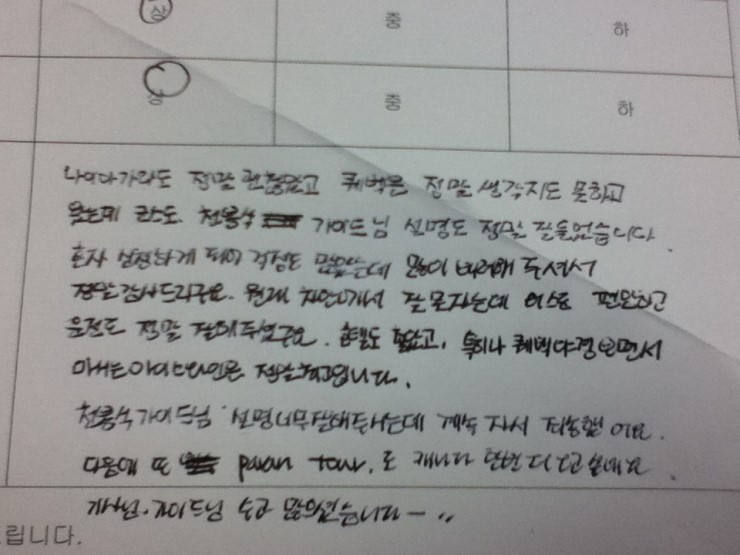 상 중 하
상 중 하
나이아가라도 정말 괜찮았고 퀘벡은 정말 생각지도 못하고
왔는데 천용석 가이드님 설명도 정말 잘들었습니다.
혼자 하게 되어 걱정도 많았는데 많이 배려해 주셔서
정말 감사드리구요. 원래 차안에서 잘 못자는데 버스도 편안하고
운전도 정말 잘해주셨구요. 호텔도 좋았고, 특히나 퀘벡야경보면서
마시는 아이스와인은 정말 최고입니다.
천용석가이드님 설명너무잘해주시는데 계속 자서 죄송했어요.
다음에 또 paran tour.로 캐나다 한번 더 오고싶네요.
기사님.가이드님 수고 많으셨습니다 ㅡ..
드립니다.